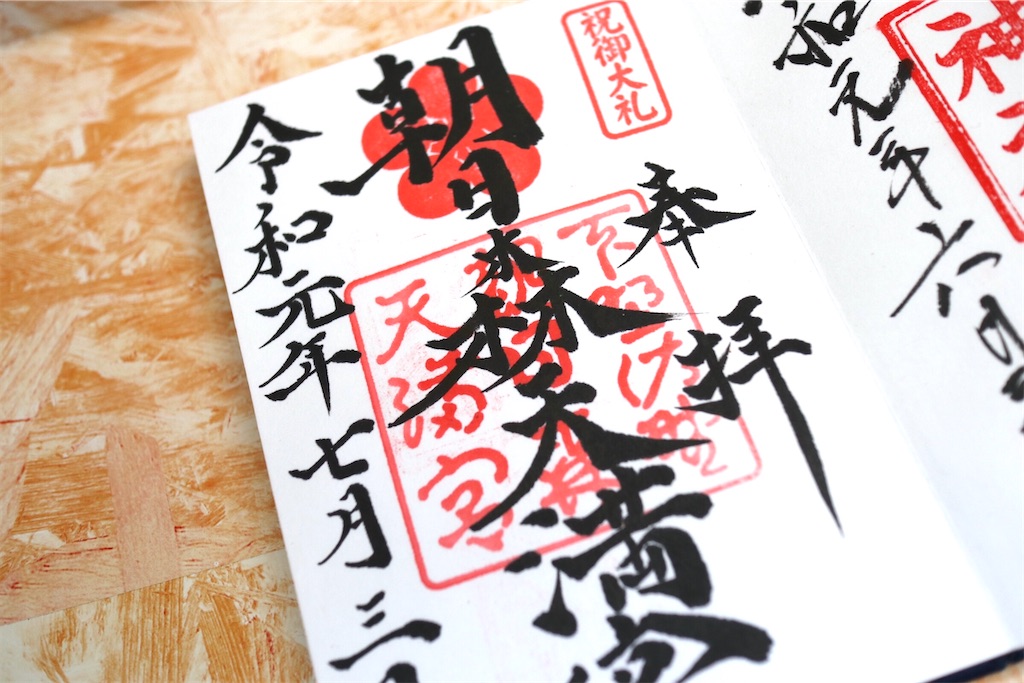 令和元年六月
神
祝御大礼
奉拝
朝日森天満宮
下野佐野
天満宮
令和元年七月三日